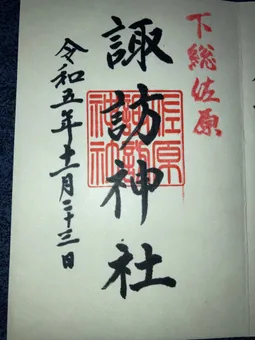 下総佐原
諏訪神社
佐原
諏訪
神社
令和五年十一月二十三日